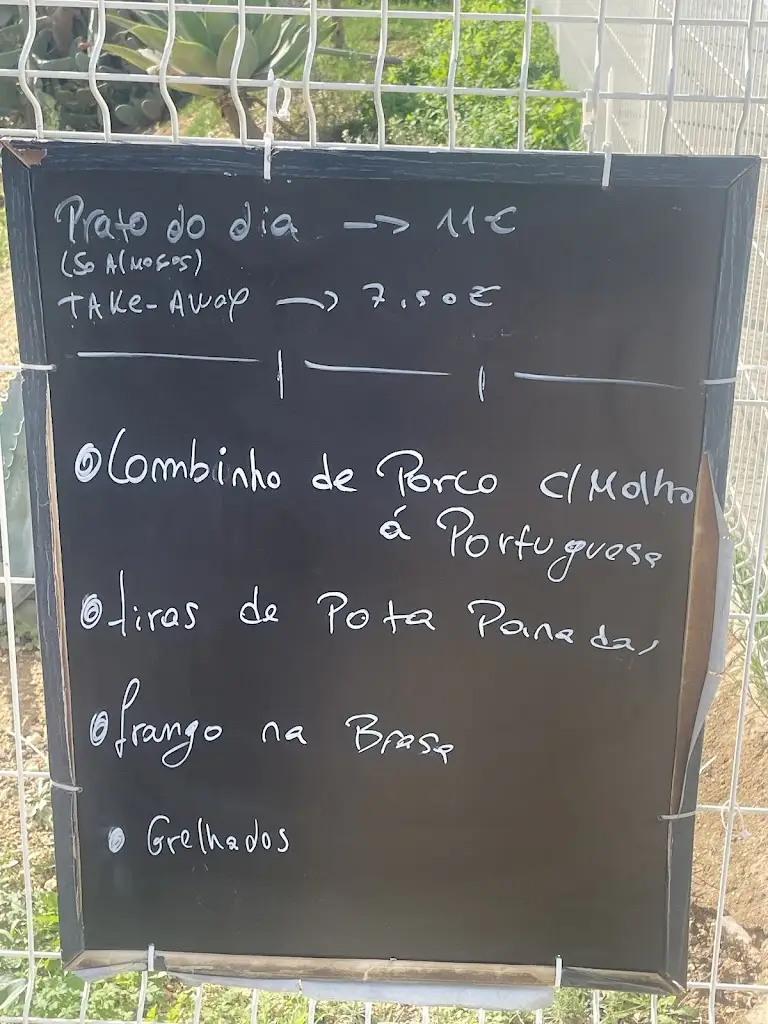 Prato do dia → 11€
(So Almoços)
TAKE-AWAY → 7.50€
Lombinho de Porco c/Molho
á Portuguesa
tiras de Pota Panadas
frango na Brasa
Grelhados